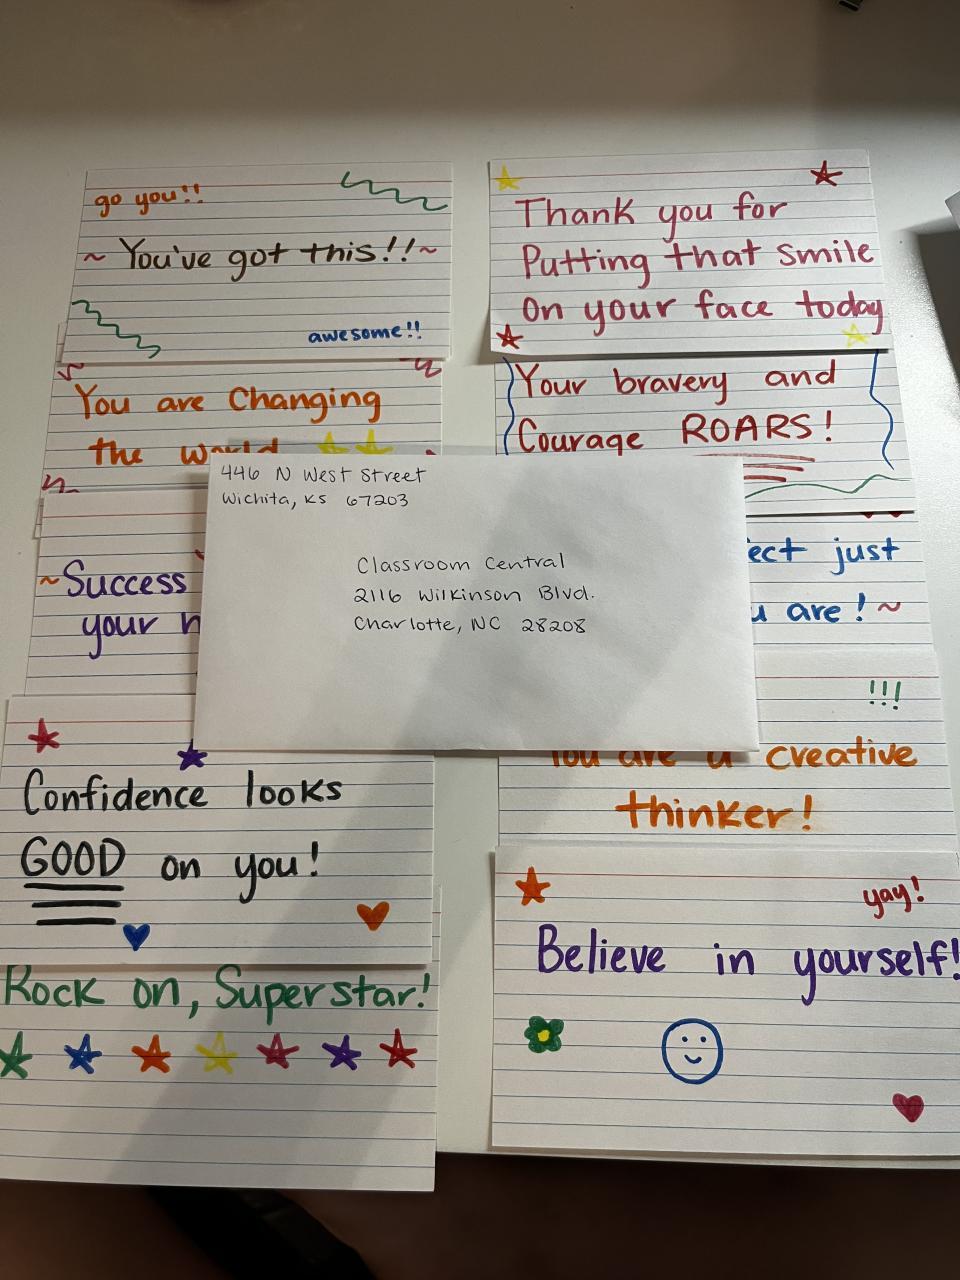 go you!!
~ You've got this!! ~
awesome!!
Thank you for
Putting that smile
on your face today
You are Changing
the world
Your bravery and
Courage ROARS!
446 N West Street
Wichita, KS 67203
Classroom Central
2116 Wilkinson Blvd.
Charlotte, NC 28208
~Success
your
just
are! ~
!!!
You are a creative
thinker!
Confidence looks
GOOD on you!
Rock on, Superstar!
yay!
Believe in yourself!